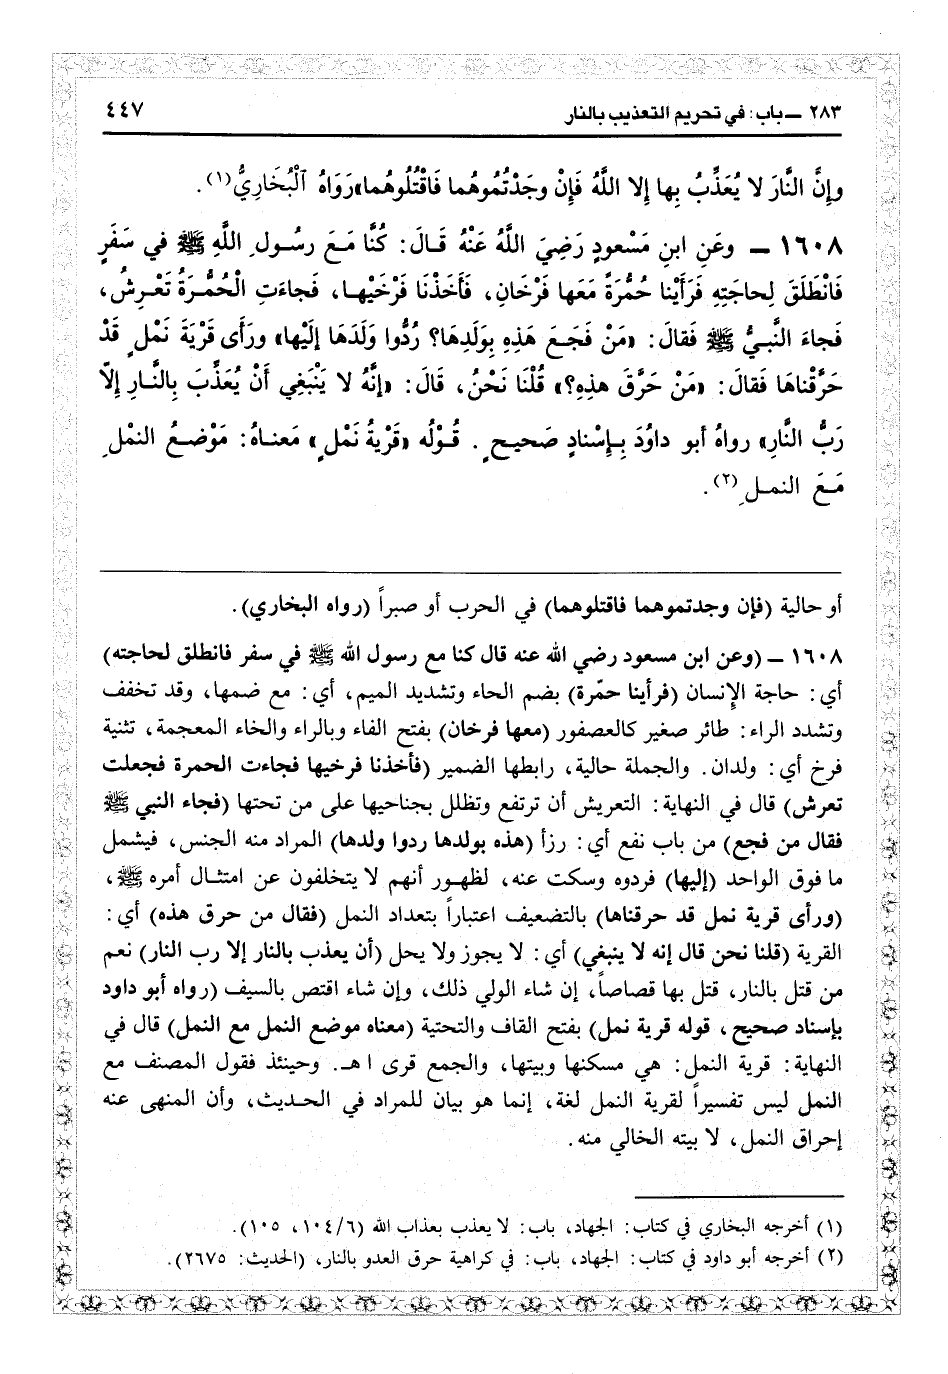 ٢٨٣ ــ باب: في تحريم التعذيب بالنار ٤٤٧
وإِنَّ النَّارَ لا يُعَذِّبُ بِها إلا اللَّهُ فَإِنْ وجَدْتُمُوهُما فَاقْتُلُوهُما» رَوَاهُ الْبُخَارِيُّ(١).
١٦٠٨ ــ وعَنِ ابنِ مَسْعودٍ رَضِيَ اللَّهُ عَنْهُ قَالَ: كُنَّا مَعَ رسُولِ اللَّهِ ﷺ في سَفَرٍ
فَانْطَلَقَ لِحاجَتِهِ فَرَأَيْنا حُمَّرَةً مَعَها فَرْخَانِ، فَأَخَذْنَا فَرْخَيْها، فَجاءَتِ الْحُمَّرَةُ تَعْرِشُ،
فَجاءَ النَّبيُّ ﷺ فَقالَ: «مَنْ فَجَعَ هَذِهِ بِوَلَدِهَا؟ رُدُّوا وَلَدَهَا إِلَيْها» ورَأى قَرْيَةَ نَمْلٍ قَدْ
حَرَّقْناهَا فَقالَ: «مَنْ حَرَّقَ هذِهِ؟» قُلْنَا نَحْنُ، قَالَ: «إنَّهُ لا يَنْبَغِي أَنْ يُعَذِّبَ بِالنَّارِ إلَّا
رَبُّ النَّارِ» رواهُ أبو داوُدَ بِإسْنادٍ صَحيحٍ. قَوْلُه «قَرْيَةُ نَمْلٍ» مَعناهُ: مَوْضعُ النمْلِ
مَعَ النملِ(٢).
أو حالية (فإن وجدتموهما فاقتلوهما) في الحرب أو صبراً (رواه البخاري).
١٦٠٨ ــ (وعن ابن مسعود رضي الله عنه قال كنا مع رسول الله ﷺ في سفر فانطلق لحاجته)
أي: حاجة الإنسان (فرأينا حمّرة) بضم الحاء وتشديد الميم، أي: مع ضمها، وقد تخفف
وتشدد الراء: طائر صغير كالعصفور (معها فرخان) بفتح الفاء وبالراء والخاء المعجمة، تثنية
فرخ أي: ولدان. والجملة حالية، رابطها الضمير (فأخذنا فرخيها فجاءت الحمرة فجعلت
تعرش) قال في النهاية: التعريش أن ترتفع وتظلل بجناحيها على من تحتها (فجاء النبي ﷺ
فقال من فجع) من باب نفع أي: رزأ (هذه بولدها ردوا ولدها) المراد منه الجنس، فيشمل
ما فوق الواحد (إليها) فردوه وسكت عنه، لظهور أنهم لا يتخلفون عن امتثال أمره ﷺ،
(ورأى قرية نمل قد حرقناها) بالتضعيف اعتباراً بتعداد النمل (فقال من حرق هذه) أي:
القرية (قلنا نحن قال إنه لا ينبغي) أي: لا يجوز ولا يحل (أن يعذب بالنار إلا رب النار) نعم
من قتل بالنار، قتل بها قصاصاً، إن شاء الولي ذلك، وإن شاء اقتص بالسيف (رواه أبو داود
بإسناد صحيح، قوله قرية نمل) بفتح القاف والتحتية (معناه موضع النمل مع النمل) قال في
النهاية: قرية النمل: هي مسكنها وبيتها، والجمع قرى ا هـ. وحينئذ فقول المصنف مع
النمل ليس تفسيراً لقرية النمل لغة، إنما هو بيان للمراد في الحديث، وأن المنهى عنه
إحراق النمل، لا بيته الخالي منه.
(١) أخرجه البخاري في كتاب: الجهاد، باب: لا يعذب بعذاب الله (١٠٤/٦، ١٠٥).
(٢) أخرجه أبو داود في كتاب: الجهاد، باب: في كراهية حرق العدو بالنار، (الحديث: ٢٦٧٥).